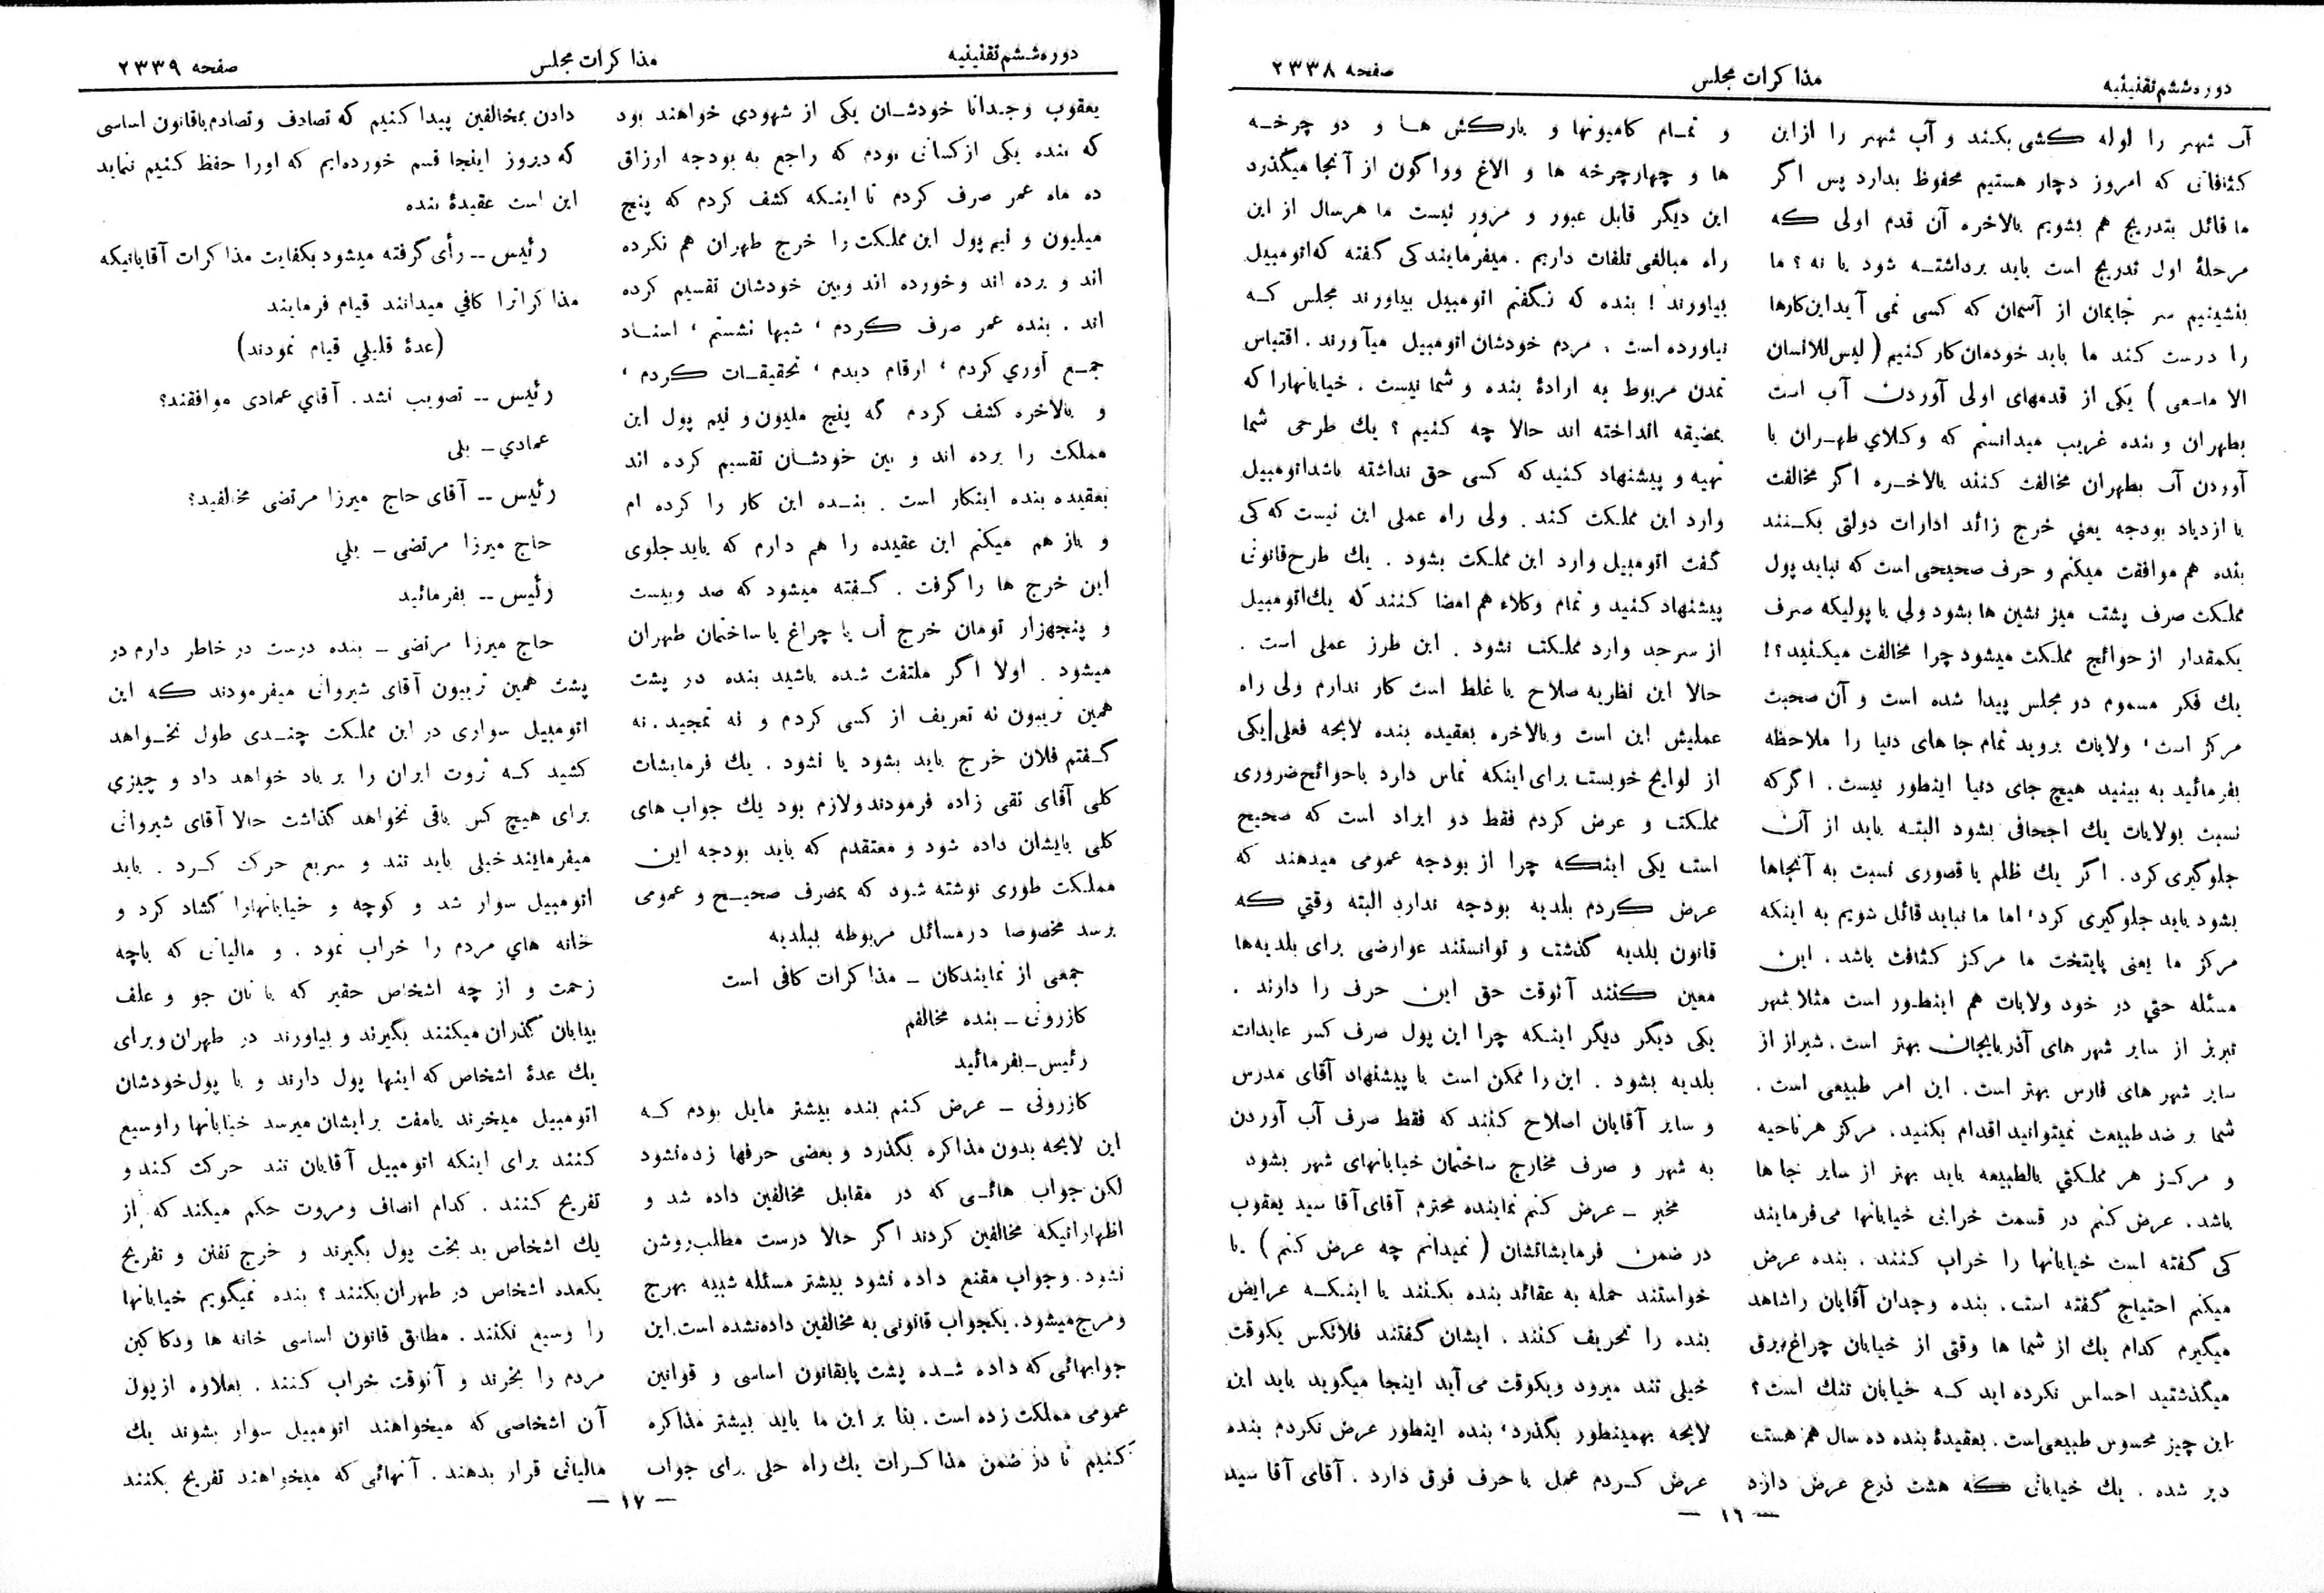 دوره ششم تقنینیه
مذاکرات مجلس
صفحه ۲۳۳۸
آب شهر را لوله کشی بکنند و آب شهر را از این
کثافاتی که امروز دچار هستیم محفوظ بدارد پس اگر
ما قائل بتدریج هم بشویم بالاخره آن قدم اولی که
مرحلهٔ اول تدریج است باید برداشته شود یا نه ؟ ما
بنشینیم سر جایمان از آسمان که کسی نمی آید این کارها
را درست کند ما باید خودمان کار کنیم ( لیس للانسان
الا ماسعی ) یکی از قدمهای اولی آوردن آب است
بطهران و بنده غریب میدانستم که وکلای طهران با
آوردن آب بطهران مخالفت کنند بالاخره اگر مخالفت
با ازدیاد بودجه یعنی خرج زائد ادارات دولتی بکنند
بنده هم موافقت میکنم و حرف صحیحی است که نباید پول
مملکت صرف پشت میز نشین ها بشود ولی با پولیکه صرف
یکمقدار از حوائج مملکت میشود چرا مخالفت میکنید ؟!
یك فکر مسموم در مجلس پیدا شده است و آن صحبت
مرکز است ، ولایات بروید تمام جاهای دنیا را ملاحظه
بفرمائید به بینید هیچ جای دنیا اینطور نیست . اگر که
نسبت بولایات یك اجحافی بشود البته باید از آن
جلوگیری کرد . اگر یك ظلم یا قصوری نسبت به آنجاها
بشود باید جلوگیری کرد ، اما ما نباید قائل شویم به اینکه
مرکز ما یعنی پایتخت ما مرکز کثافت باشد . این
مسئله حتی در خود ولایات هم اینطور است مثلا شهر
تبریز از سایر شهر های آذربایجان بهتر است . شیراز از
سایر شهر های فارس بهتر است . این امر طبیعی است .
شما بر ضد طبیعت نمیتوانید اقدام بکنید . مرکز هر ناحیه
و مرکز هر مملکتی بالطبیعه باید بهتر از سایر جاها
باشد . عرض کنم در قسمت خرابی خیابانها می فرمایند
کی گفته است خیابانها را خراب کنند . بنده عرض
میکنم احتیاج گفته است . بنده وجدان آقایان را شاهد
میگیرم کدام یك از شما ها وقتی از خیابان چراغ برق
میگذشتید احساس نکرده اید که خیابان تنك است ؟
این چیز محسوس طبیعی است . بعقیدهٔ بنده ده سال هم هست
دیر شده . یك خیابانی که هشت ذرع عرض دارد
و تمام کامیونها و بارکش ها و دو چرخه
ها و چهارچرخه ها و الاغ و واگون از آنجا میگذرد
این دیگر قابل عبور و مرور نیست ما هر سال از این
راه مبالغی تلفات داریم . میفرمایند کی گفته که اتومبیل
بیاورند ! بنده که نگفتم اتومبیل بیاورند مجلس که
نیاورده است ، مردم خودشان اتومبیل میآورند . اقتباس
تمدن مربوط به ارادهٔ بنده و شما نیست . خیابانها را که
بمضیقه انداخته اند حالا چه کنیم ؟ یك طرحی شما
تهیه و پیشنهاد کنید که کسی حق نداشته باشد اتومبیل
وارد این مملکت کند . ولی راه عملی این نیست که کی
گفت اتومبیل وارد این مملکت بشود . یك طرح قانونی
پیشنهاد کنید و تمام وکلاء هم امضا کنند که یك اتومبیل
از سرحد وارد مملکت نشود . این طرز عملی است .
حالا این نظریه صلاح یا غلط است کار ندارم ولی راه
عملیش این است و بالاخره بعقیده بنده لایحه فعلی یکی
از لوایح خوبست برای اینکه تماس دارد باحوائج ضروری
مملکت و عرض کردم فقط دو ایراد است که صحیح
است یکی اینکه چرا از بودجه عمومی میدهند که
عرض کردم بلدیه بودجه ندارد البته وقتی که
قانون بلدیه گذشت و توانستند عوارضی برای بلدیه‌ها
معین کنند آنوقت حق این حرف را دارند .
یکی دیگر دیگر اینکه چرا این پول صرف کسر عایدات
بلدیه بشود . این را ممکن است با پیشنهاد آقای مدرس
و سایر آقایان اصلاح کنند که فقط صرف آب آوردن
به شهر و صرف مخارج ساختمان خیابانهای شهر بشود
مخبر ــ عرض کنم نماینده محترم آقای آقا سید یعقوب
در ضمن فرمایشاتشان ( نمیدانم چه عرض کنم ) یا
خواستند حمله به عقائد بنده بکنند یا اینکه عرایض
بنده را تحریف کنند . ایشان گفتند فلانکس یکوقت
خیلی تند میرود و یکوقت می آید اینجا میگوید باید این
لایحه بهمینطور بگذرد ، بنده اینطور عرض نکردم بنده
عرض کردم عمل با حرف فرق دارد . آقای آقا سید
— ۱۶ —
دوره ششم تقنینیه
مذاکرات مجلس
صفحه ۲۳۳۹
یعقوب وجدانا خودشان یکی از شهودی خواهند بود
که بنده یکی از کسانی بودم که راجع به بودجه ارزاق
ده ماه عمر صرف کردم تا اینکه کشف کردم که پنج
میلیون و نیم پول این مملکت را خرج طهران هم نکرده
اند و برده اند و خورده اند و بین خودشان تقسیم کرده
اند . بنده عمر صرف کردم ، شبها نشستم ، اسناد
جمع آوری کردم ، ارقام دیدم ، تحقیقات کردم ،
و بالاخره کشف کردم که پنج ملیون و نیم پول این
مملکت را برده اند و بین خودشان تقسیم کرده اند
بعقیده بنده اینکار است . بنده این کار را کرده ام
و باز هم میکنم این عقیده را هم دارم که باید جلوی
این خرج ها را گرفت . گفته میشود که صد و بیست
و پنجهزار تومان خرج آب یا چراغ یا ساختمان طهران
میشود . اولا اگر ملتفت شده باشید بنده در پشت
همین تریبون نه تعریف از کسی کردم و نه تمجید . نه
گفتم فلان خرج باید بشود یا نشود . یك فرمایشات
کلی آقای تقی زاده فرمودند ولازم بود یك جواب های
کلی بایشان داده شود و معتقدم که باید بودجه این
مملکت طوری نوشته شود که بمصرف صحیح و عمومی
برسد مخصوصا در مسائل مربوطه ببلدیه
جمعی از نمایندکان ــ مذاکرات کافی است
کازرونی ــ بنده مخالفم
رئیس ــ بفرمائید
کازرونی ــ عرض کنم بنده بیشتر مایل بودم که
این لایحه بدون مذاکره بگذرد و بعضی حرفها زده نشود
لکن جواب هائی که در مقابل مخالفین داده شد و
اظهاراتیکه مخالفین کردند اگر حالا درست مطلب روشن
نشود . و جواب مقنع داده نشود بیشتر مسئله شبیه بهرج
و مرج میشود . یکجواب قانونی به مخالفین داده نشده است . این
جوابهائی که داده شده پشت پابقانون اساسی و قوانین
عمومی مملکت زده است . بنا بر این ما باید بیشتر مذاکره
کنیم تا در ضمن مذاکرات یك راه حلی برای جواب
دادن بمخالفین پیدا کنیم که تصادف و تصادم باقانون اساسی
که دیروز اینجا قسم خورده‌ایم که اورا حفظ کنیم ننماید
این است عقیدهٔ بنده
رئیس ــ رأی گرفته میشود بکفایت مذاکرات آقایانیکه
مذاکراترا کافی میدانند قیام فرمایند
(عدهٔ قلیلی قیام نمودند)
رئیس ــ تصویب نشد . آقای عمادی موافقند؟
عمادی ــ بلی
رئیس ــ آقای حاج میرزا مرتضی مخالفید؟
حاج میرزا مرتضی ــ بلی
رئیس ــ بفرمائید
حاج میرزا مرتضی ــ بنده درست در خاطر دارم در
پشت همین تریبون آقای شیروانی میفرمودند که این
اتومبیل سواری در این مملکت چندی طول نخواهد
کشید که ثروت ایران را بر باد خواهد داد و چیزی
برای هیچ کس باقی نخواهد گذاشت حالا آقای شیروانی
میفرمایند خیلی باید تند و سریع حرکت کرد . باید
اتومبیل سوار شد و کوچه و خیابانهارا گشاد کرد و
خانه های مردم را خراب نمود . و مالیاتی که باچه
زحمت و از چه اشخاص حقیر که با نان جو و علف
بیابان گذران میکنند بگیرند و بیاورند در طهران و برای
یك عدهٔ اشخاص که اینها پول دارند و با پول خودشان
اتومبیل میخرند یامفت برایشان میرسد خیابانها را وسیع
کنند برای اینکه اتومبیل آقایان تند حرکت کند و
تفریح کنند . کدام انصاف و مروت حکم میکند که از
یك اشخاص بد بخت پول بگیرند و خرج تفنن و تفریح
یکعده اشخاص در طهران بکنند ؟ بنده نمیگویم خیابانها
را وسیع نکنند . مطابق قانون اساسی خانه ها ودکاکین
مردم را بخرند و آنوقت خراب کنند . بعلاوه از پول
آن اشخاصی که میخواهند اتومبیل سوار بشوند یك
مالیاتی قرار بدهند . آنهائی که میخواهند تفریح بکنند
— ۱۷ —